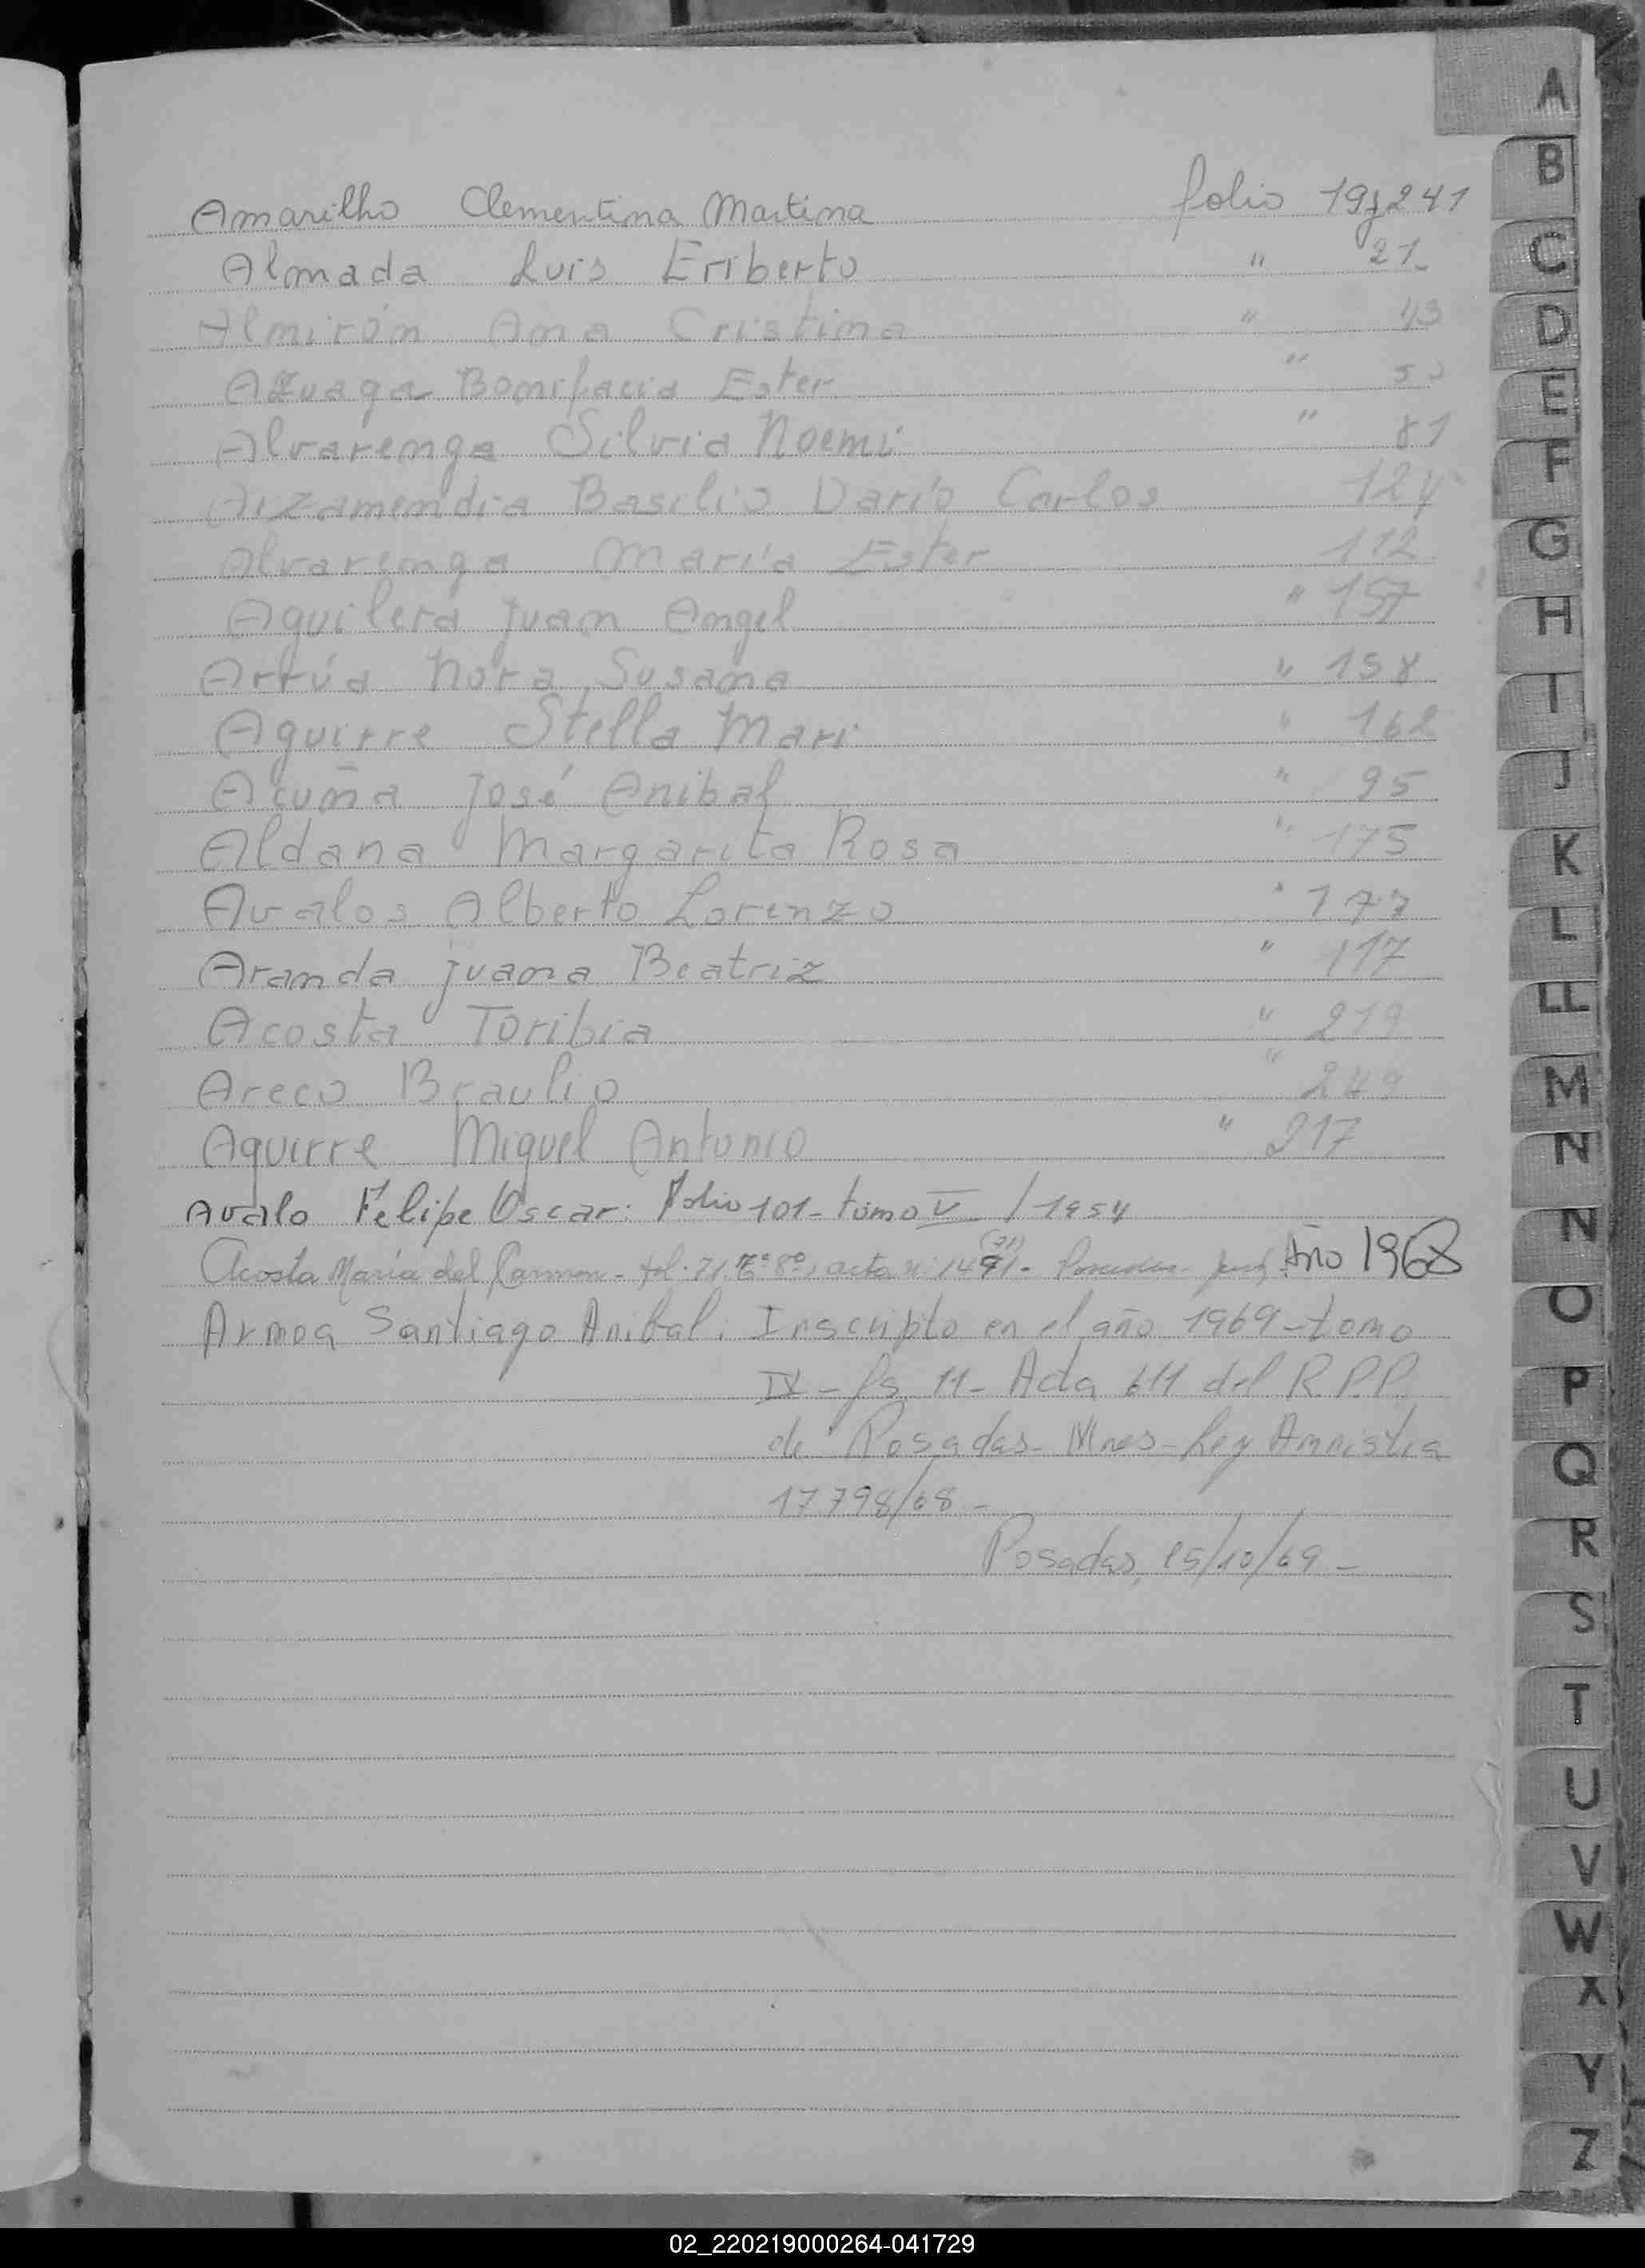 A
B
C
D
E
F
G
H
I
J
K
L
LL
M
N
Ñ
O
P
Q
R
S
T
U
V
W
X
Y
Z
Amarilho Clementina Martina folio 19 y 241
Almada Luis Eriberto " 21
Almirón Ana Cristina " 43
Azuaga Bonifacia Ester "
Alvarenga Silvia Noemi " 81
Arzamendia Basilio Darío Carlos 124
Alvarenga María Ester 112
Aguilera Juan Angel " 157
Arrúa Nora Susana " 158
Aguirre Stella Mari " 162
Acuña José Anibal " 95
Aldana Margarita Rosa " 175
Avalos Alberto Lorenzo " 177
Aranda Juana Beatriz " 117
Acosta Toribia " 219
Areco Braulio " 249
Aguirre Miguel Antonio " 217
Avalo Felipe Oscar: Folio 101- tomo V / 1954
Acosta María del Carmen - fol. 71 Tº 8º, acta nº 1471 (71) - Año 1968
Armoa Santiago Anibal: Inscripto en el año 1969 - tomo
IX - fs. 11- Acta 611 del R.P.P.
de Posadas- Mnes- Ley Amnistia
17798/68 -
Posadas, 15/10/69 -
02_220219000264-041729